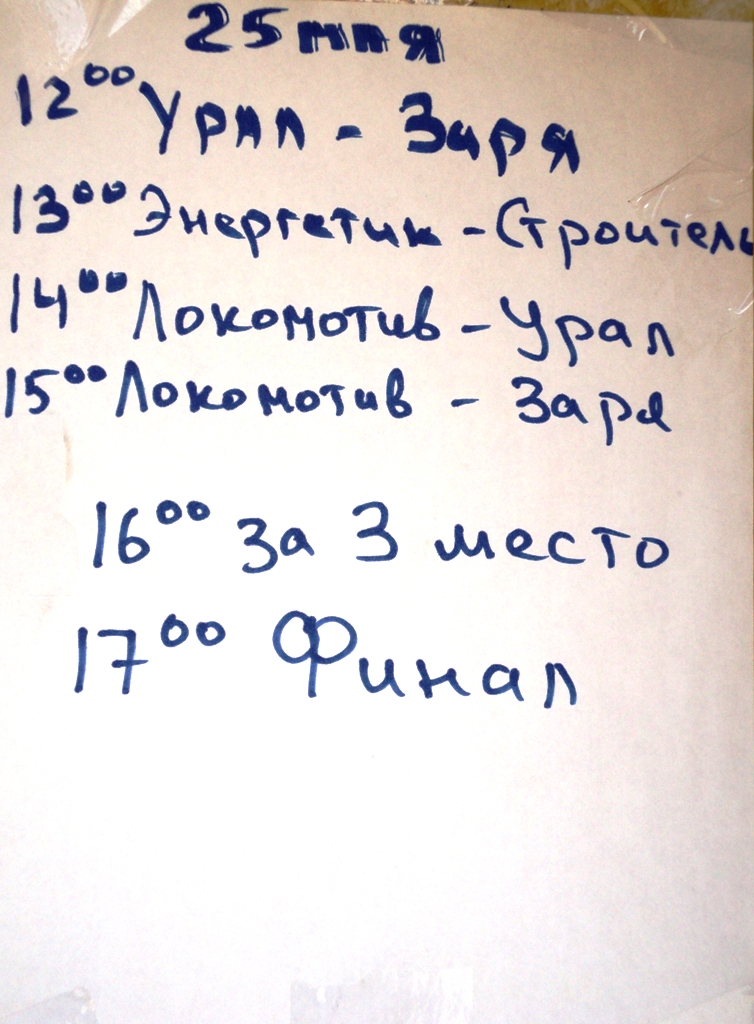 25 мая
12⁰⁰ Урал - Заря
13⁰⁰ Энергетик - Строитель
14⁰⁰ Локомотив - Урал
15⁰⁰ Локомотив - Заря
16⁰⁰ за 3 место
17⁰⁰ Финал